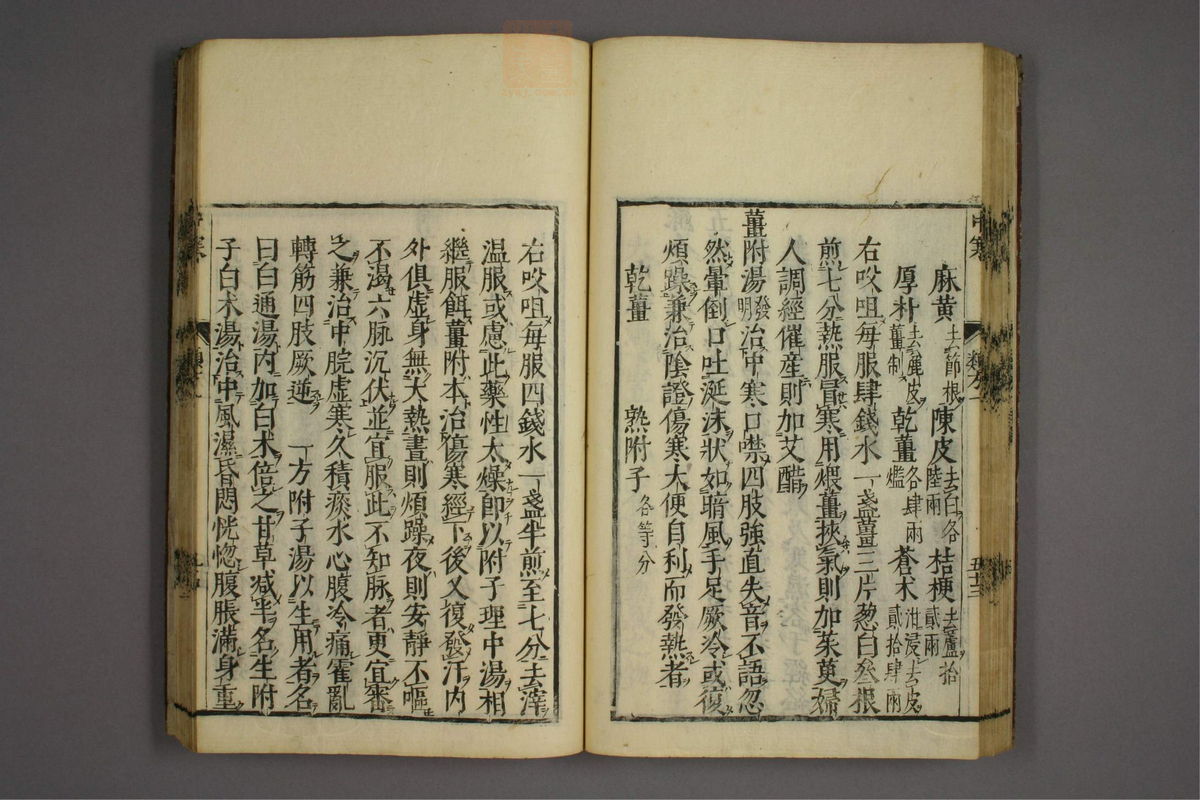 麻黄去節根陳皮去白各陸兩桔梗去蘆拾貳兩
厚朴去麄皮薑制乾薑各肆兩爁蒼术泔浸去皮貳拾肆兩
右㕮咀每服肆錢水一盞薑三片葱白叁根
煎七分熱服冒寒用煨薑挾氣則加茱萸婦
人調經催産則加艾醋
薑附湯發明治中寒口噤四肢強直失音不語忽
然暈倒口吐涎沫狀如暗風手足厥冷或復
煩躁兼治陰證傷寒大便自利而發熱者
乾薑 熟附子各等分
右㕮咀每服四錢水一盞半煎至七分去滓
温服或慮此藥性太燥即以附子理中湯相
繼服餌薑附本治傷寒經下後又復發汗内
外俱虚身無大熱晝則煩躁夜則安靜不嘔
不渴六脉沉伏並宜服此不知脉者更宜審
之兼治中脘虚寒久積痰水心腹冷痛霍亂
轉筋四肢厥逆 一方附子湯以生用者名
曰白通湯内加白术倍之甘草減半名生附
子白术湯治中風濕昏悶恍惚腹脹滿身重